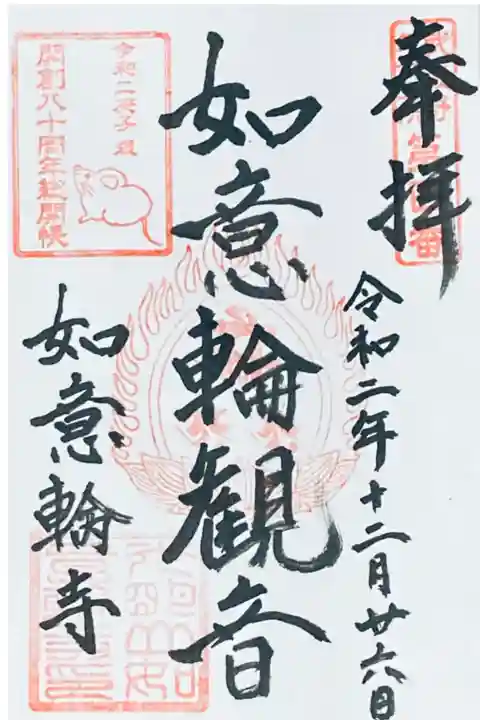 奉拝
令和二年十二月廿六日
如意輪観音
如意輪寺
令和二庚子歳
開創八十周年総開帳